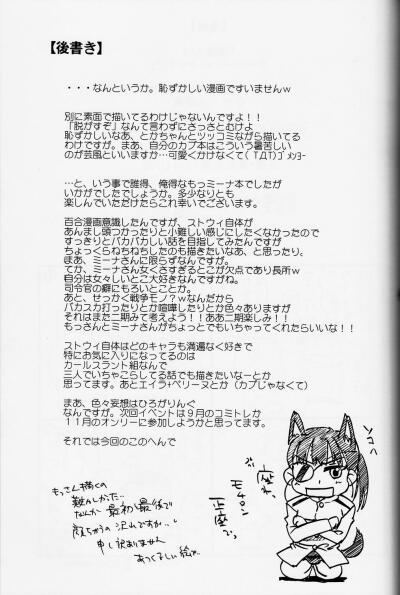 【後書き】
・・・なんというか。恥ずかしい漫画ですいませんｗ
別に素面で描いてるわけじゃないんですよ！！
「脱がすぞ」なんて言わずにさっさとむけよ
恥ずかしいなあ、とかちゃんとツッコミながら描いてる
わけですが。まあ、自分のカプ本はこういう暑苦しい
のが芸風といいますか…可愛くかけなくて(ТДТ)ｺﾞﾒﾝﾖｰ
…と、いう事で誰得、俺得なもっミーナ本でしたが
いかがでしたでしょうか。多少なりとも
楽しんでいただけたらこれ幸いでございます。
百合漫画意識したんですが、ストウィ自体が
あんまし頭つかったりと小難しい感じにしたくなかったので
すっきりとバカバカしい話を目指してみたんですが
ちょっくらねちねちしたのも描きたいなあ、と思ったり。
まあ、ミーナさんに限らずなんですが。
てか、ミーナさん女くさすぎるとこが欠点であり長所ｗ
自分は女々しいとこ大好きなんですがね。
司令官の癖にもろいとことか。
あと、せっかく戦争モノ？ｗなんだから
バカスカ打ったりとか喧嘩したりとか色々ありますが
それはまた二期みて考えよう！！ああ二期楽しみ！！
もっさんとミーナさんがちょっとでもいちゃってくれたらいいな！！
ストウィ自体はどのキャラも満遍なく好きで
特にお気に入りになってるのは
カールスラント組なんで
三人でいちゃこらしてる話でも描きたいなーとか
思ってます。あとエイラ+ペリーヌとか（カプじゃなくて）
まあ、色々妄想はひろがりんぐ
なんですが。次回イベントは９月のコミトレか
１１月のオンリーに参加しようかと思ってます。
それでは今回のこのへんで
もっさん描くの
難かしかった…
なんか最初と最後で
顔ちがうの沢れですか…
申し訳ありません
あつくるしい絵で
正座で。